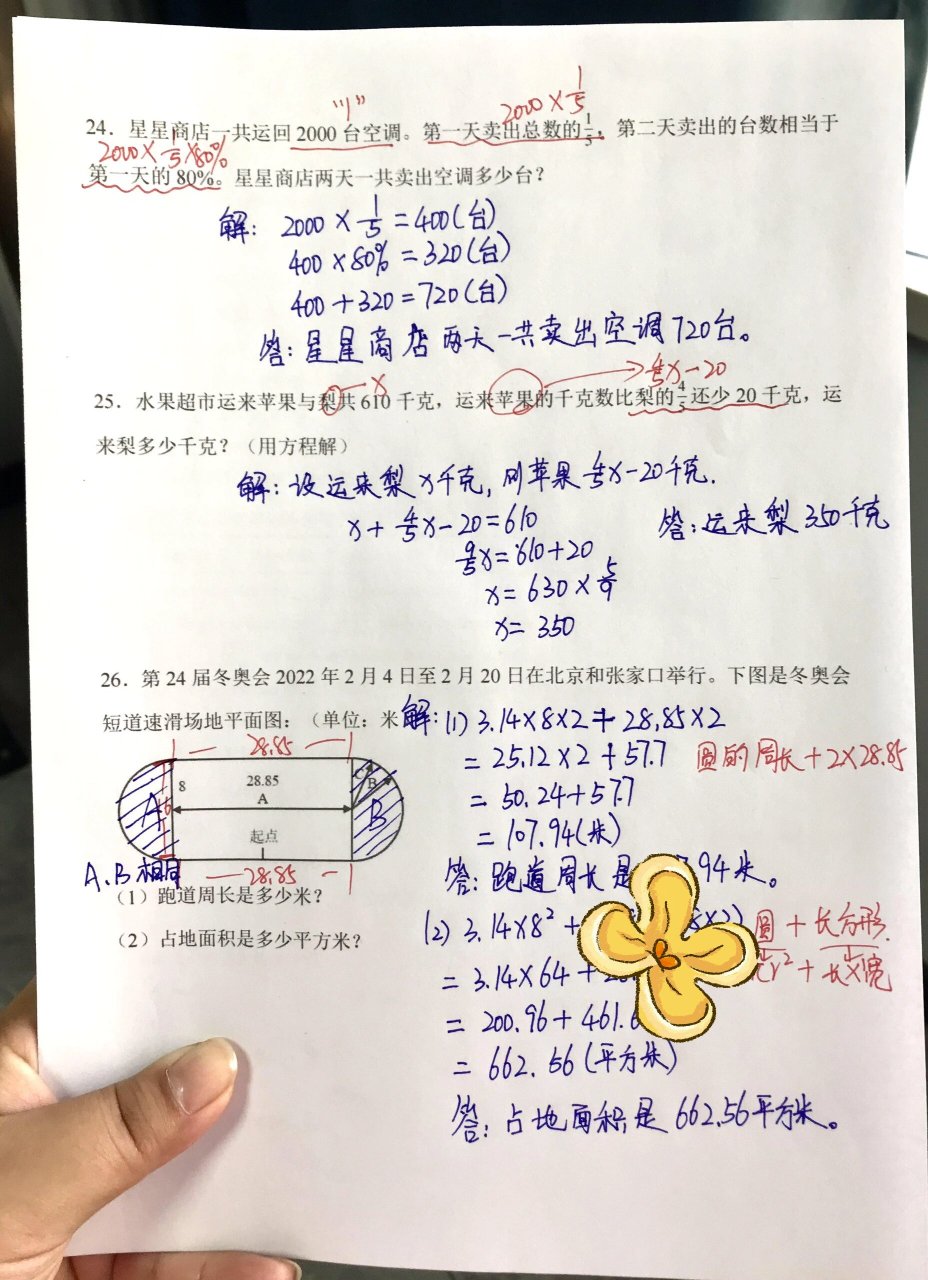 "1"
2000×1/5
24．星星商店一共运回 2000 台空调。第一天卖出总数的1/5，第二天卖出的台数相当于
2000×1/5×80%
第一天的 80%。星星商店两天一共卖出空调多少台？
解：2000×1/5=400(台)
400×80%=320(台)
400+320=720(台)
答：星星商店两天一共卖出空调720台。
x
4/5x-20
25．水果超市运来苹果与梨共 610 千克，运来苹果的千克数比梨的4/5还少 20 千克，运
来梨多少千克？（用方程解）
解：设运来梨x千克，则苹果4/5x-20千克.
x+4/5x-20=610
答：运来梨350千克
9/5x=610+20
x=630×5/9
x=350
26．第 24 届冬奥会 2022 年 2 月 4 日至 2 月 20 日在北京和张家口举行。下图是冬奥会
短道速滑场地平面图：（单位：米
解：(1) 3.14×8×2+28.85×2
=25.12×2+57.7
圆的周长+2×28.85
=50.24+57.7
=107.94(米)
答：跑道周长是 94米。
28.85
8
28.85
A
C
B
A
B
起点
28.85
A、B相同
（1）跑道周长是多少米？
（2）占地面积是多少平方米？
(2) 3.14×8²+ ×2)
圆+长方形.
=3.14×64+
r²+长×宽
=200.96+461.
=662.56(平方米)
答：占地面积是662.56平方米。